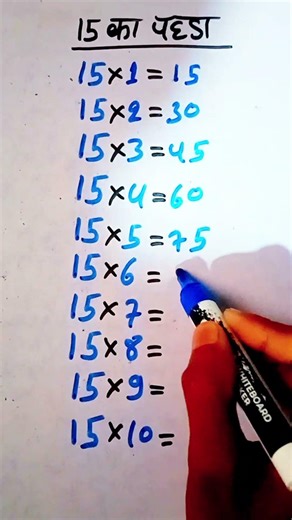 15 का पहाडा
15×1=15
15×2=30
15×3=45
15×4=60
15×5=75
15×6=
15×7=
15×8=
15×9=
15×10=
WHITEBOARD
MARKER